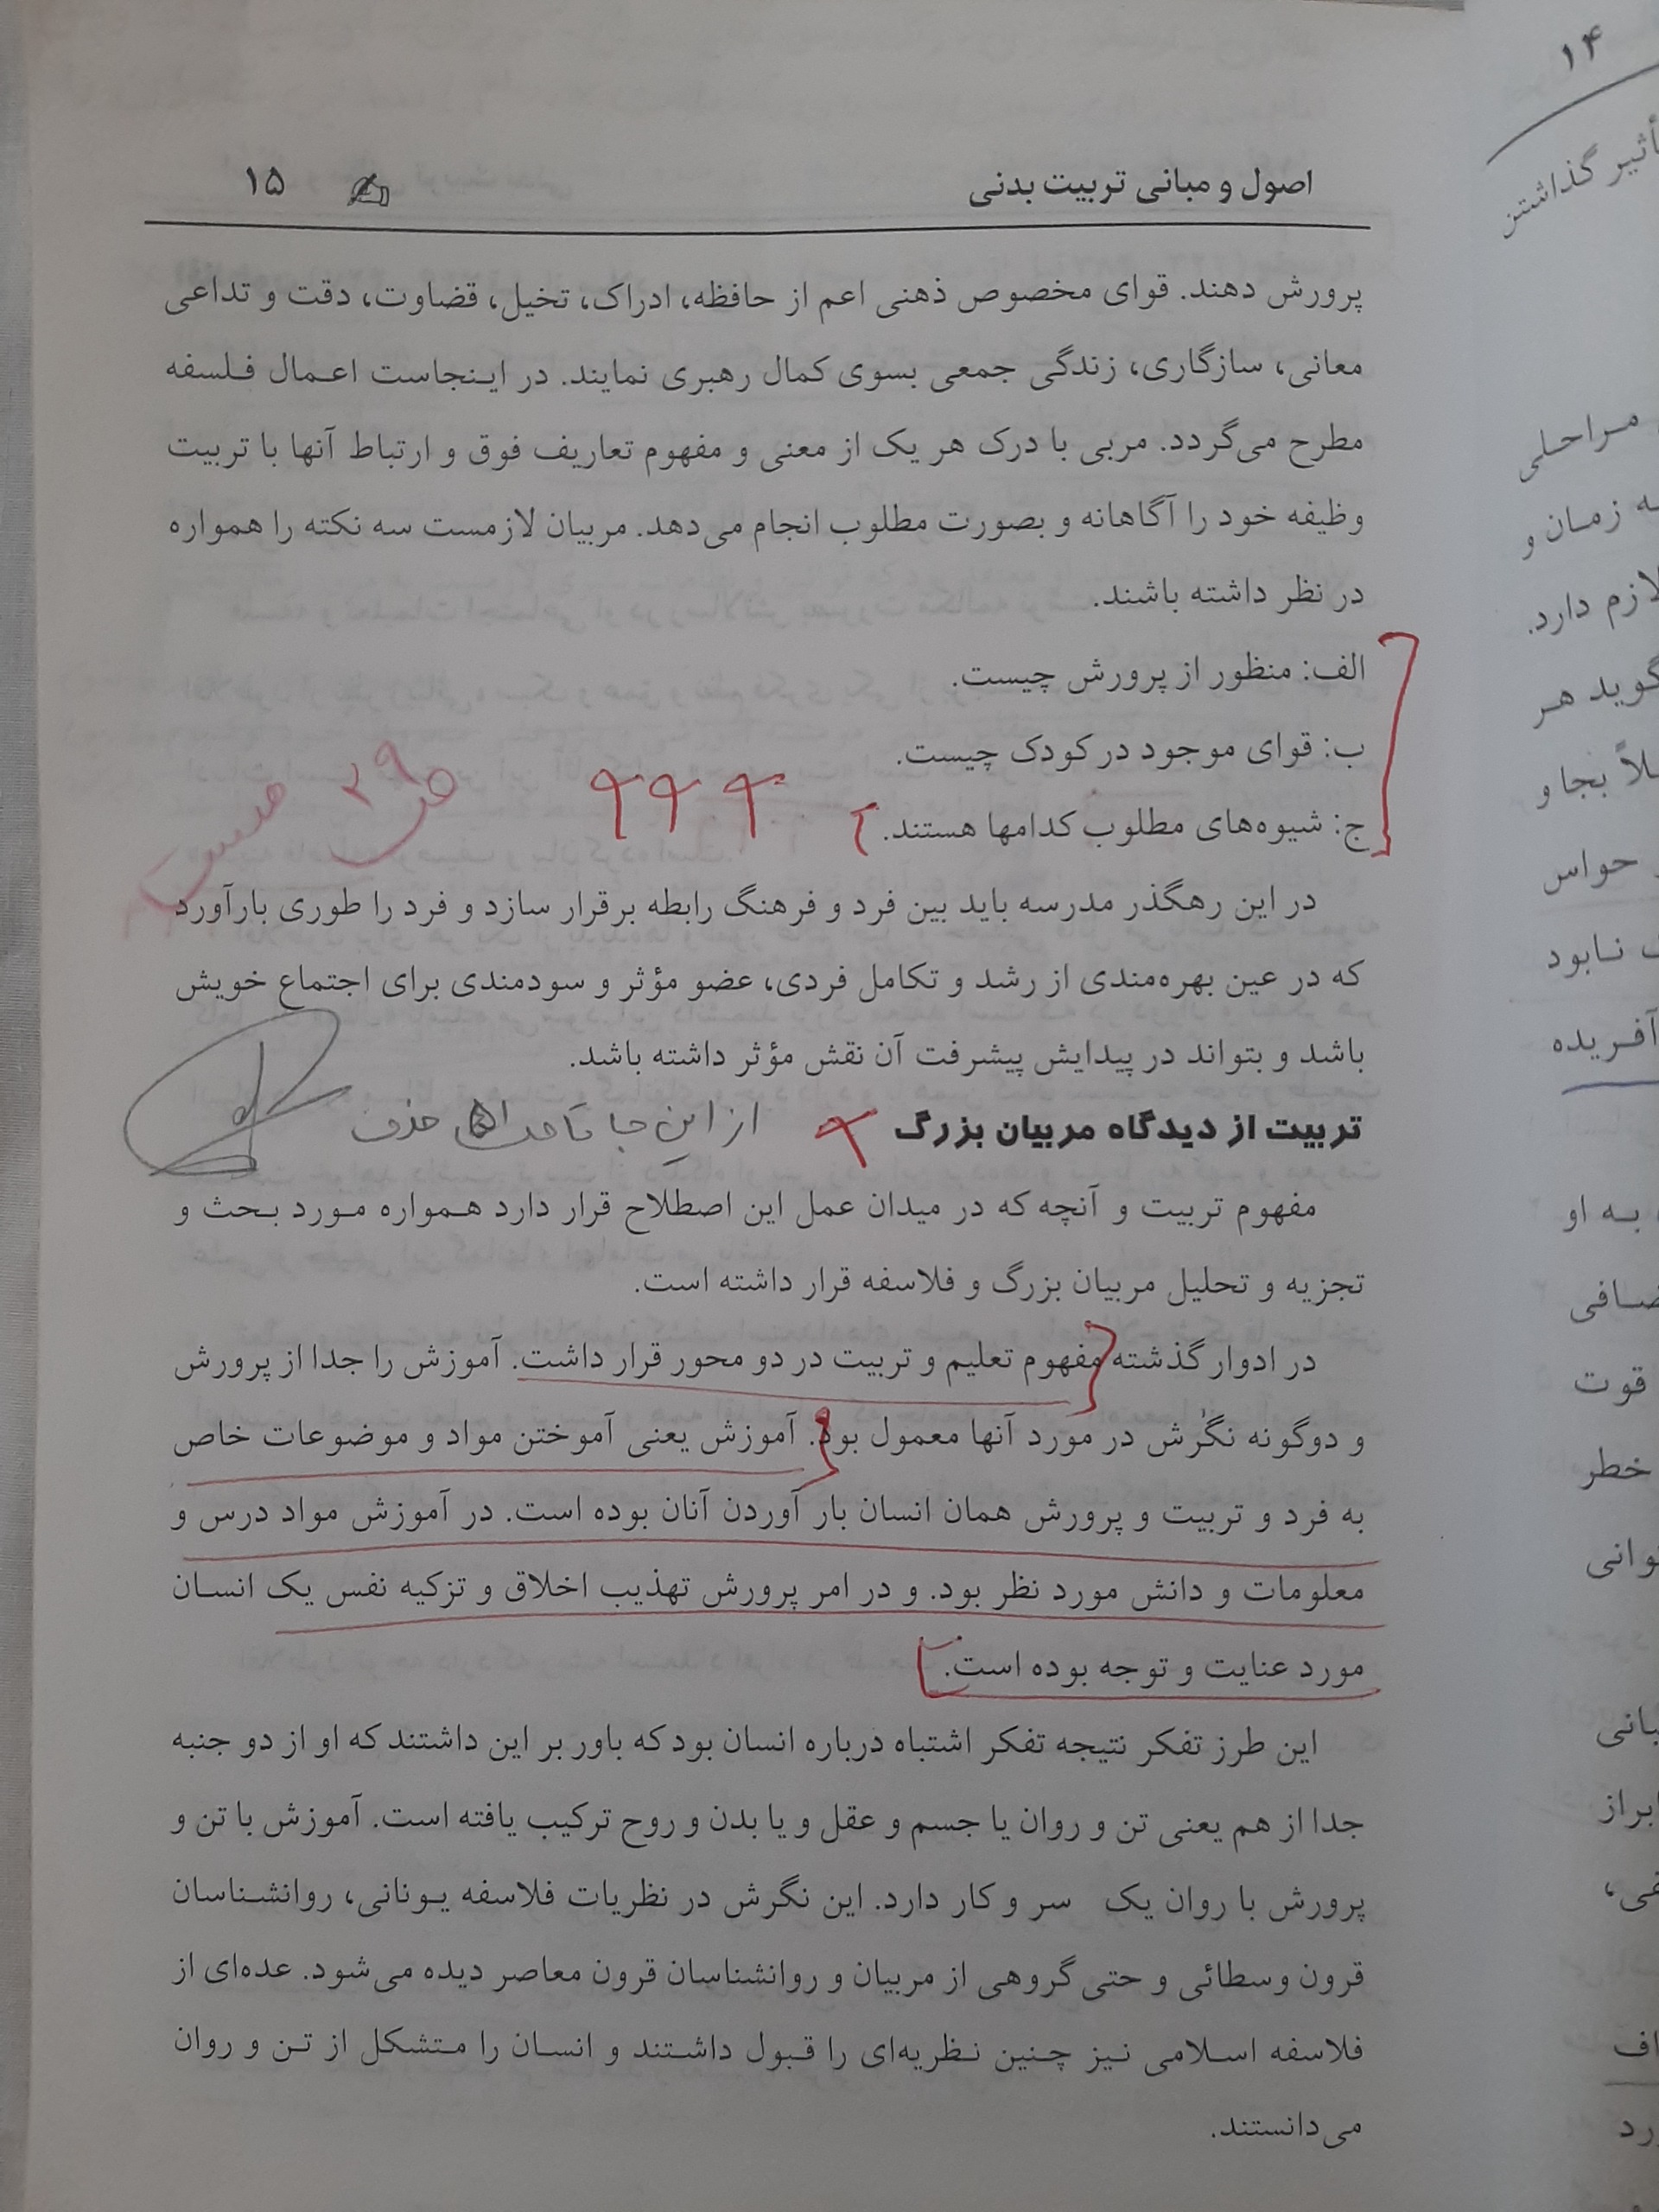 اصول و مبانی تربیت بدنی ۱۵
پرورش دهند. قوای مخصوص ذهنی اعم از حافظه، ادراک، تخیل، قضاوت، دقت و تداعی
معانی، سازگاری، زندگی جمعی بسوی کمال رهبری نمایند. در اینجاست اعمال فلسفه
مطرح می‌گردد. مربی با درک هر یک از معنی و مفهوم تعاریف فوق و ارتباط آنها با تربیت
وظیفه خود را آگاهانه و بصورت مطلوب انجام می‌دهد. مربیان لازمست سه نکته را همواره
در نظر داشته باشند.
الف: منظور از پرورش چیست.
ب: قوای موجود در کودک چیست.
ج: شیوه‌های مطلوب کدامها هستند.
در این رهگذر مدرسه باید بین فرد و فرهنگ رابطه برقرار سازد و فرد را طوری بارآورد
که در عین بهره‌مندی از رشد و تکامل فردی، عضو مؤثر و سودمندی برای اجتماع خویش
باشد و بتواند در پیدایش پیشرفت آن نقش مؤثر داشته باشد.
تربیت از دیدگاه مربیان بزرگ از این جا تا حذف
مفهوم تربیت و آنچه که در میدان عمل این اصطلاح قرار دارد همواره مورد بحث و
تجزیه و تحلیل مربیان بزرگ و فلاسفه قرار داشته است.
در ادوار گذشته مفهوم تعلیم و تربیت در دو محور قرار داشت. آموزش را جدا از پرورش
و دوگونه نگرش در مورد آنها معمول بود. آموزش یعنی آموختن مواد و موضوعات خاص
به فرد و تربیت و پرورش همان انسان بار آوردن آنان بوده است. در آموزش مواد درس و
معلومات و دانش مورد نظر بود. و در امر پرورش تهذیب اخلاق و تزکیه نفس یک انسان
مورد عنایت و توجه بوده است.
این طرز تفکر نتیجه تفکر اشتباه درباره انسان بود که باور بر این داشتند که او از دو جنبه
جدا از هم یعنی تن و روان یا جسم و عقل و یا بدن و روح ترکیب یافته است. آموزش با تن و
پرورش با روان یک سر و کار دارد. این نگرش در نظریات فلاسفه یونانی، روانشناسان
قرون وسطائی و حتی گروهی از مربیان و روانشناسان قرون معاصر دیده می‌شود. عده‌ای از
فلاسفه اسلامی نیز چنین نظریه‌ای را قبول داشتند و انسان را متشکل از تن و روان
می‌دانستند.
۱۴
تأثیر گذاشتن
مراحلی
زمان و
لازم دارد.
گوید هر
بجا و
حواس
نابود
آفریده
به او
قوت
خطر